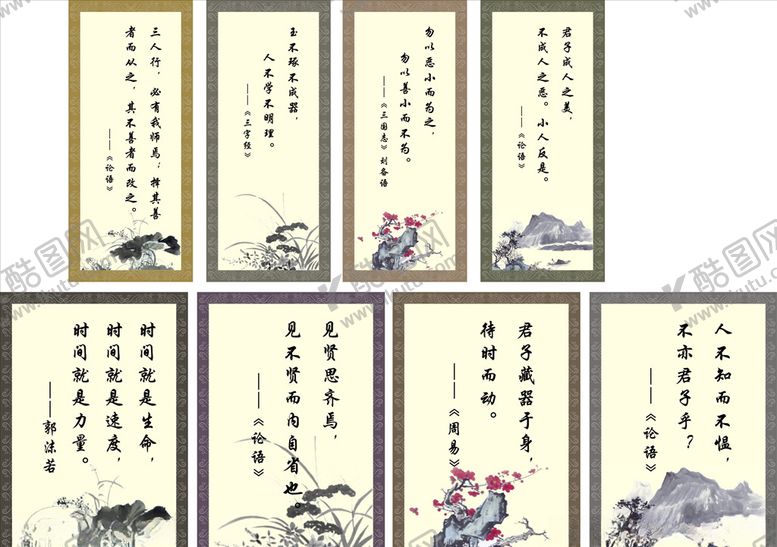 三人行，必有我师焉；择其善
者而从之，其不善者而改之。
——《论语》
玉不琢不成器，
人不学不明理。
——《三字经》
勿以恶小而为之，
勿以善小而不为。
——《三国志》刘备语
君子成人之美，
不成人之恶。小人反是。
——《论语》
时间就是生命，
时间就是速度，
时间就是力量。
——郭沫若
见贤思齐焉，
见不贤而内自省也。
——《论语》
君子藏器于身，
待时而动。
——《周易》
人不知而不愠，
不亦君子乎？
——《论语》
酷图网